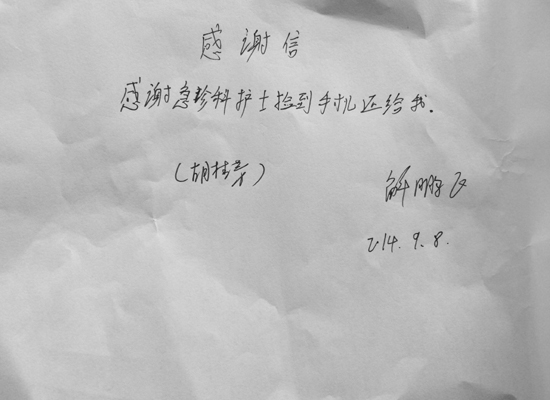 感谢信
感谢急诊科护士捡到手机还给我.
(胡桂芳)
解鹏飞
2014.9.8.